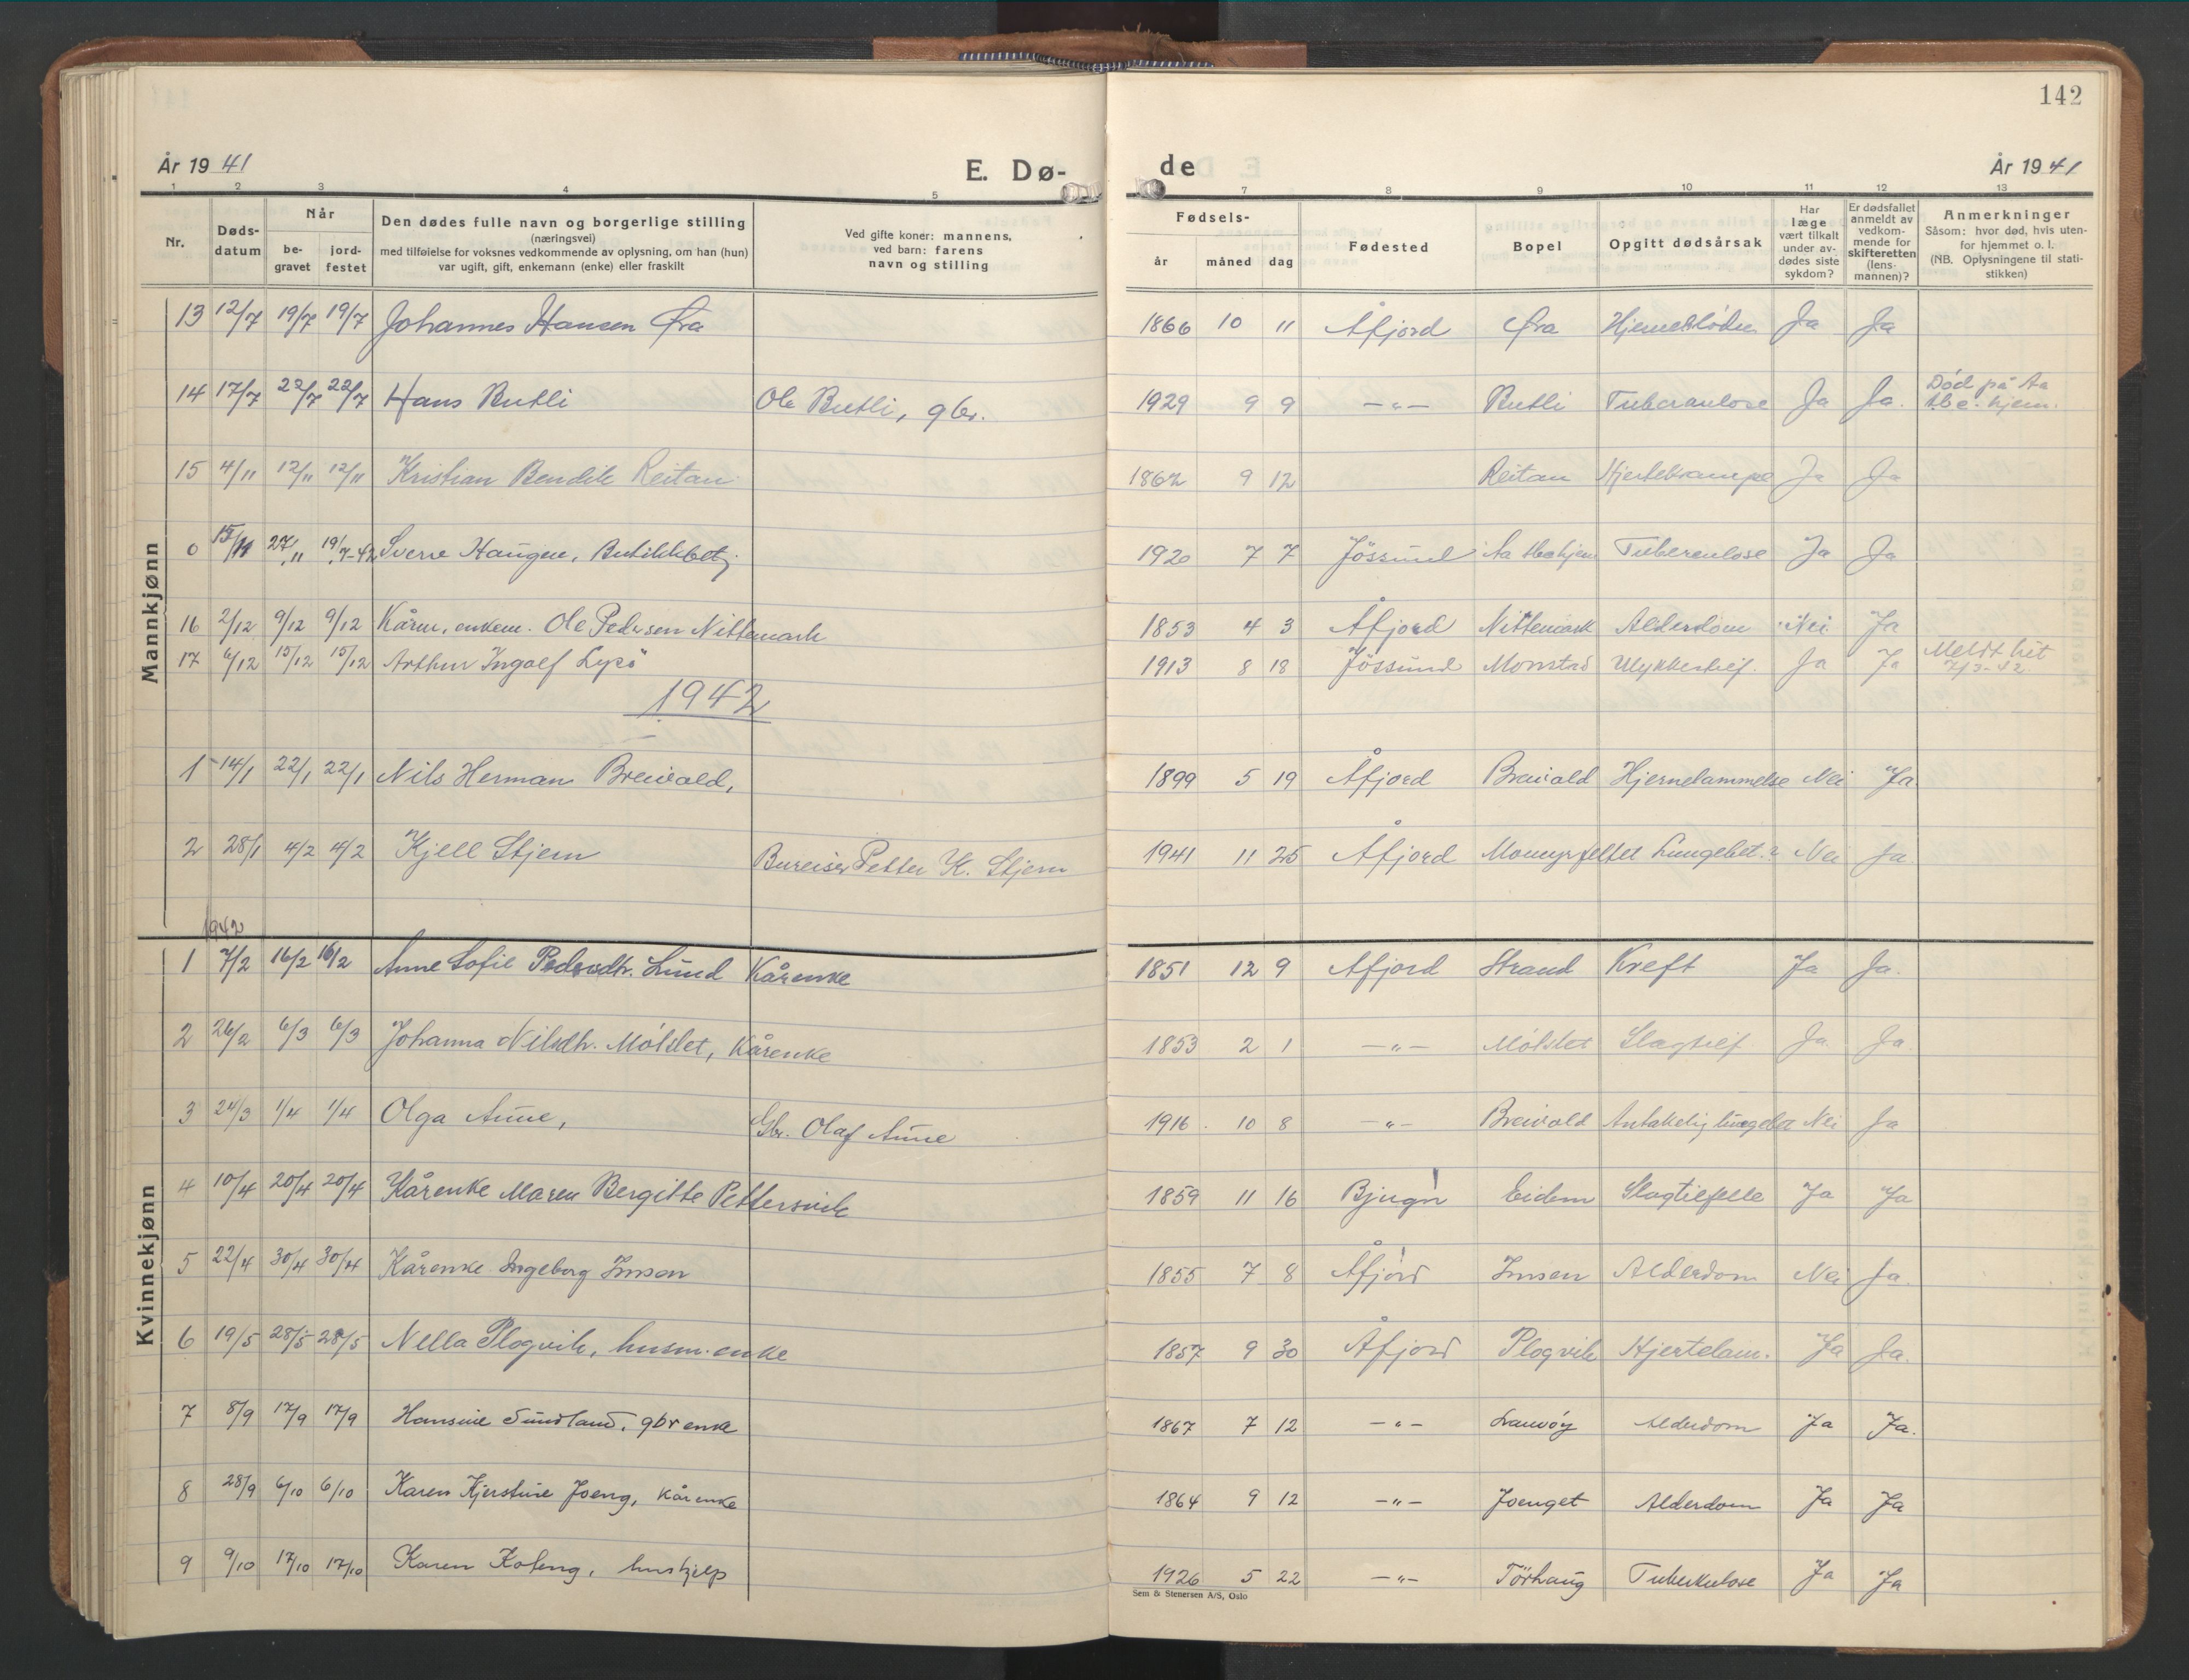 142
År 1941 E. Dø- de År 1941
1 2 3 4 5 7 8 9 10 11 12 13
Nr. Dødsdatum Når begravet jordfestet
Den dødes fulle navn og borgerlige stilling
(næringsvei)
med tilføielse for voksnes vedkommende av oplysning, om han (hun)
var ugift, gift, enkemann (enke) eller fraskilt
Ved gifte koner: mannens,
ved barn: farens
navn og stilling
Fødsels- år måned dag
Fødested Bopel Opgitt dødsårsak
Har læge vært tilkalt under avdødes siste sykdom?
Er dødsfallet anmeldt av vedkommende for skifteretten (lensmannen)?
Anmerkninger
Såsom: hvor død, hvis utenfor hjemmet o. l.
(NB. Oplysningene til statistikken)
Mannkjønn
13 12/7 19/7 19/7 Johannes Hansen Øra 1866 10 11 Åfjord Øra Ja Ja
14 17/7 22/7 22/7 Hans Butli Ole Butli, gbr. 1929 9 9 —"— Butli Ja Ja. Død på Aa tbc. hjem.
15 4/11 12/11 12/11 Kristian Bendik Reitan 1862 9 12 Reitan Hjertekrampe Ja Ja
0 15/11 27/11 19/7-42 Sverre Haugen, Butikkbetj. 1920 7 7 Jössund Aa tbc hjem Tuberculose Ja Ja
16 2/12 9/12 9/12 Kårm, enkem. Ole Pedersen Nittemark 1853 4 3 Åfjord Nittemark Alderdom Nei Ja
17 6/12 15/12 15/12 Arthur Ingolf Lysö 1913 8 18 Jössund Monstad Ulykkestilf. Ja Ja Meldt hit 7/3-42
1942
1 14/1 22/1 22/1 Nils Herman Breivold, 1899 5 19 Åfjord Breivold Hjernelammelse Nei Ja
2 28/1 4/2 4/2 Kjell Stjern Bureiser Petter K. Stjern 1941 11 25 Åfjord Momyrfeltet Lungebet.? Nei Ja
Kvinnekjønn
1942
1 7/2 16/2 16/2 Anne Sofie Pedersdtr. Lund Kårenke 1851 12 9 Åfjord Strand Kreft Ja Ja.
2 26/2 6/3 6/3 Johanna Nilsdtr. Mölslet, Kårenke 1853 2 1 —"— Mölslet Slagtilf. Ja Ja
3 24/3 1/4 1/4 Olga Aune, Gbr. Olaf Aune 1916 10 8 —"— Breivold Nei Ja
4 10/4 20/4 20/4 Kårenke Maren Bergitte Pettersvik 1859 11 16 Bjugn Eidem Slagtilfelle Ja Ja
5 22/4 30/4 30/4 Kårenke Ingeborg Imsen 1855 7 8 Åfjord Imsen Alderdom Nei Ja.
6 19/5 28/5 28/5 Nella Plogvik, husm. enke 1857 9 30 Åfjord Plogvik Hjertelam. Ja Ja.
7 8/9 17/9 17/9 Hansine Sundland, gbr enke 1867 7 12 —"— Alderdom Ja Ja.
8 28/9 6/10 6/10 Karen Kjerstine Joeng, kårenke 1864 9 12 —"— Joenget Alderdom Ja Ja
9 9/10 17/10 17/10 Karen Koteng, hushjelp 1926 5 22 —"— Törhaug Tuberkulose Ja Ja
Sem & Stenersen A/S, Oslo